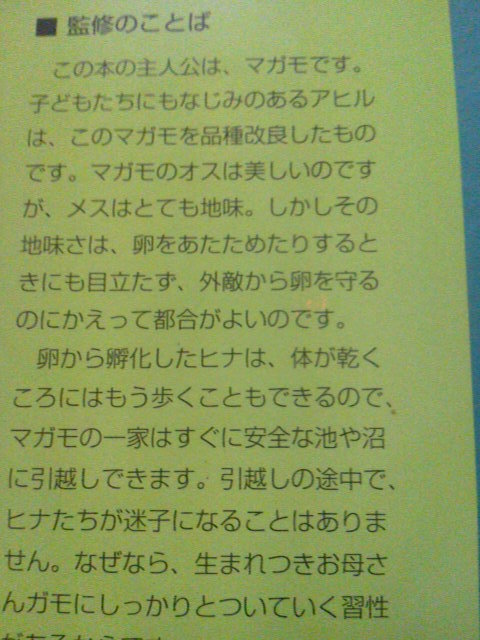 ■ 監修のことば
この本の主人公は、マガモです。
子どもたちにもなじみのあるアヒル
は、このマガモを品種改良したもの
です。マガモのオスは美しいのです
が、メスはとても地味。しかしその
地味さは、卵をあたためたりすると
きにも目立たず、外敵から卵を守る
のにかえって都合がよいのです。
卵から孵化したヒナは、体が乾く
ころにはもう歩くこともできるので、
マガモの一家はすぐに安全な池や沼
に引越しできます。引越しの途中で、
ヒナたちが迷子になることはありま
せん。なぜなら、生まれつきお母さ
んガモにしっかりとついていく習性
があるからです